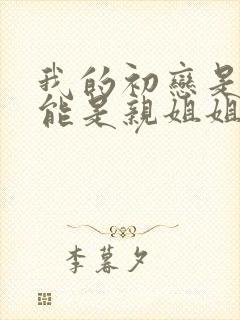 我的初戀是
能是親姐姐
李暮夕